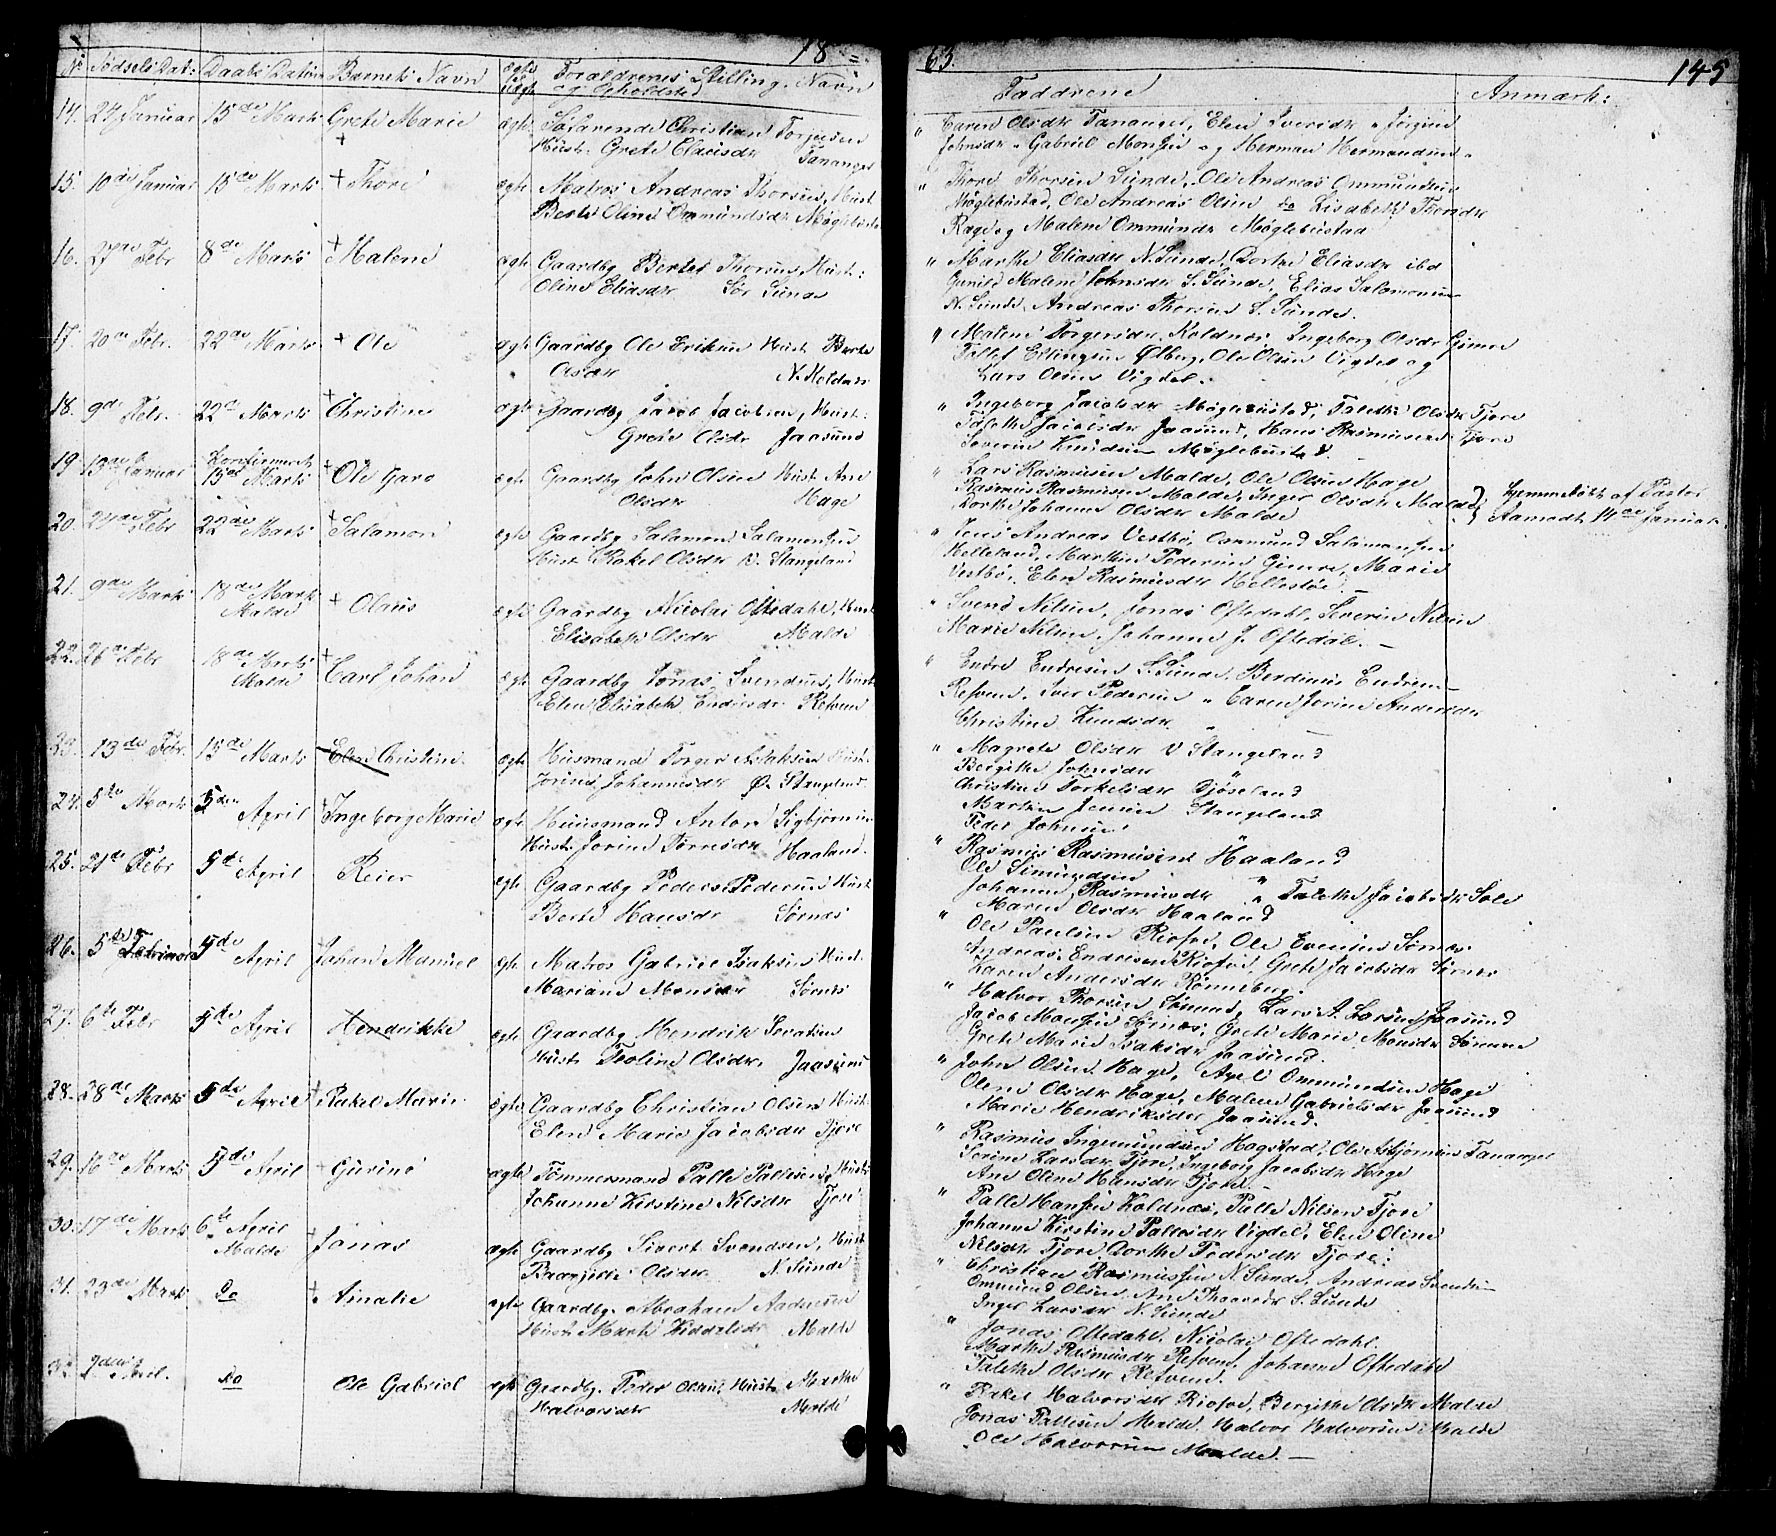 18 = 63.
145
No Fødsels Dat: Daabs Datum Barnets Navn ægte el uægte Forældrenes Stilling, Navn og Opholdsted
Faddrene Anmærk:
14. 24 Januar 15de Marts Grete Marie ægte Søfarende Christian Torgersen
Hust. Grete Clausdr Tananger
" Caren Olsdtr Tananger, Elen Iversdtr " Jørgine
Johnsdr " Gabriel Monsen og Herman Hermandsen "
15. 10de Januar 15de Marts + Thore ægte Matros Andreas Thorsen, Hust.
Berte Oline Ommundsdr Møglebustad
" Thore Thorsen Sunde, Ole Andreas Ommundsen
Møglebustad, Ole Andreas Olsen do Lisabeth Thorsdtr
Rage og Malene Ommundsdr Møglebustad
16. 27de Febr 8de Marts + Malene ægte Gaardbr Bertel Thorsen Hust:
Oline Eliasdr Sør Sunde
" Marthe Eliasdtr N. Sunde, Dorthe Eliasdtr ibd
Gunild Malene Johnsdtr S. Sunde, Elias Salomonsen
N. Sunde, Andreas Thorsen S. Sunde.
17. 20de Febr. 22de Marts + Ole ægte Gaardbg Ole Eriksen Hust Berte
Olsdtr N. Koldnæs
" Malene Torgersdtr Koldnæs, Ingeborg Olsdtr Gimre
Tollef Ellingsen Ølberg, Ole Olsen Vigdel og
Lars Olsen Vigdel.
18. 9de Febr. 22de Marts + Christine ægte Gaardbg Jacob Jacobsen, Hust:
Grete Olsdr Jaasund
" Ingeborg Jacobsdtr Møglebustad, Talette Olsdtr Tjore
Talethe Jacobsdtr Jaasund, Hans Rasmussen Tjore
Severin Knudsen Møglebustad
19 13de Januar Confirmeret 15de Marts + Ole Gard ægte Gaardbg John Olsen Hust Ane
Olsdtr Hage
" Lars Rasmusen Malde, Ole Olsen Hage
Rasmus Rasmusen Malde, Inger Olsdtr Malde
Dorthe Johanne Olsdtr Malde
Hjemmedøbt af Pastor
Aamodt 14de Januar
20. 24de Febr 22de Marts + Salamon ægte Gaardbg Salamon Salamonsen
Hust Rakel Olsdtr V. Stangeland
" Jens Andreas Vestbø, Ommund Salamonsen
Helleland, Marthin Pedersen Gimre, Marie
Vestbø, Elen Rasmusdtr Hellestøe.
21. 9de Marts 18de Marts Malde + Olaus ægte Gaardbg Nicolai Oftedahl, Hust
Elisabeth Olsdtr Malde
" Svend Nilsen, Jonas Oftedahl, Severin Nilsen
Marie Nilsen, Johanne J. Oftedal. —
22. 26de Febr 18de Marts Malde + Carl Johan ægte Gaardbg Jonas Svendsen, Hust
Elen Elisabeth Endresdr Refsnes
" Endre Endresen S. Sunde, Berdines Endresen
Refsnes, Iver Pedersen " Caren Jorine Andersdtr
Christine Knudsdtr "
23. 13de Febr. 15de Marts Elen Christine ægte Husmand Torger Aslaksen Hust.
Jorine Johannesdtr Ø. Stangeland
" Magrete Olsdtr V Stangeland
Bergithe Johnsdtr "
Christine Torkelsdtr Gjøseland
Martin Jensen Stangeland
Peder Johnsen "
24. 5te Marts 5den April + Ingeborg Marie ægte Huusmand Anton Sigbjørnsen
Hust Jorine Torresdtr Haaland.
" Rasmus Rasmusen Haaland
Ole Simundsen "
Johanne Rasmusdtr " Talethe Jacobsdtr Sole
Maren Olsdtr Haaland
25. 21de Febr 5de April Reier ægte Gaardbg Peder Pedersen Hust
Berte Hansdr Sørnæs
" Ole Paulsen Risfoe, Ole Evensen Sørnæs
Andreas Endresen Risfoe, Grete Jacobsdtr Sørnæs
Karen Andersdtr Rønneberg.
26. 5te Februar 5de April Johan Manuel ægte Matros Gabriel Isaksen Hust.
Mariane Monsdtr Sørnæs
" Halvor Thorsen Sømme, Lars A. Larsen Jaasund
Jacob Monsen Sørnæs, Grete Marie Monsdr Sømme
Grete Marie Isaksdtr Jaasund.
27. 6te Febr 5de April Hendrikke ægte Gaardbg Hendrik Soratsen
Hust Teoline Olsdtr. Jaasund
" John Olsen Hage, Axel Ommundsen Hage
Olene Olsdtr Hage, Malene Gabrielsdtr Jaasund
Marie Hendriksdtr Jaasund.
28. 28de Marts 5de April + Rakel Marie ægte Gaardbg Christian Olsen Hust
Elen Marie Jacobsdtr Tjore
" Rasmus Ingemundsen Hogstad, Ole Asbjørnsen Tananger
Serine Larsdtr Tjore, Ingeborg Jacobsdtr Hage
Ane Oline Hansdtr Tjore. —
29. 16de Marts 5de April + Gurine ægte Tømmermand Palle Pallesen, Hust
Johanne Kirstine Nilsdtr Tjore
" Palle Hansen Koldnæs, Palle Nilsen Tjore
Johanne Kirstine Pallesdtr Vigdel, Elen Oline
Nilsdtr Tjore, Dorthe Pedersdtr Tjore:
30. 17de Marts 6te April Malde + Jonas ægte Gaardbg Sivert Svendsen, Hust
Olsdtr N. Sunde
" Christian Rasmussen N. Sunde, Andreas Svendsen
Ommund Olsen, Ane Thoresdtr S. Sunde
Inger Larsdtr N. Sunde
31. 23de Marts Do + Amalie ægte Gaardbg Abraham Aadnesen
Hust Marte Kiddelsdtr Malde
" Jonas Oftedahl, Nicolai Oftedahl.
Marthe Rasmusdtr Refsnes, Johanne Oftedahl
Talethe Olsdtr Refsnes.
32 April. Do Ole Gabriel ægte Gaardbg. Peder Olsen Hust Marthe
Halvorsdtr Malde
" Rakel Halvorsdtr Risfoe, Bergithe Olsdtr Malde
Jonas Pallesen Malde, Halvor Halvorsen Malde
Ole Halvorsen Malde. —